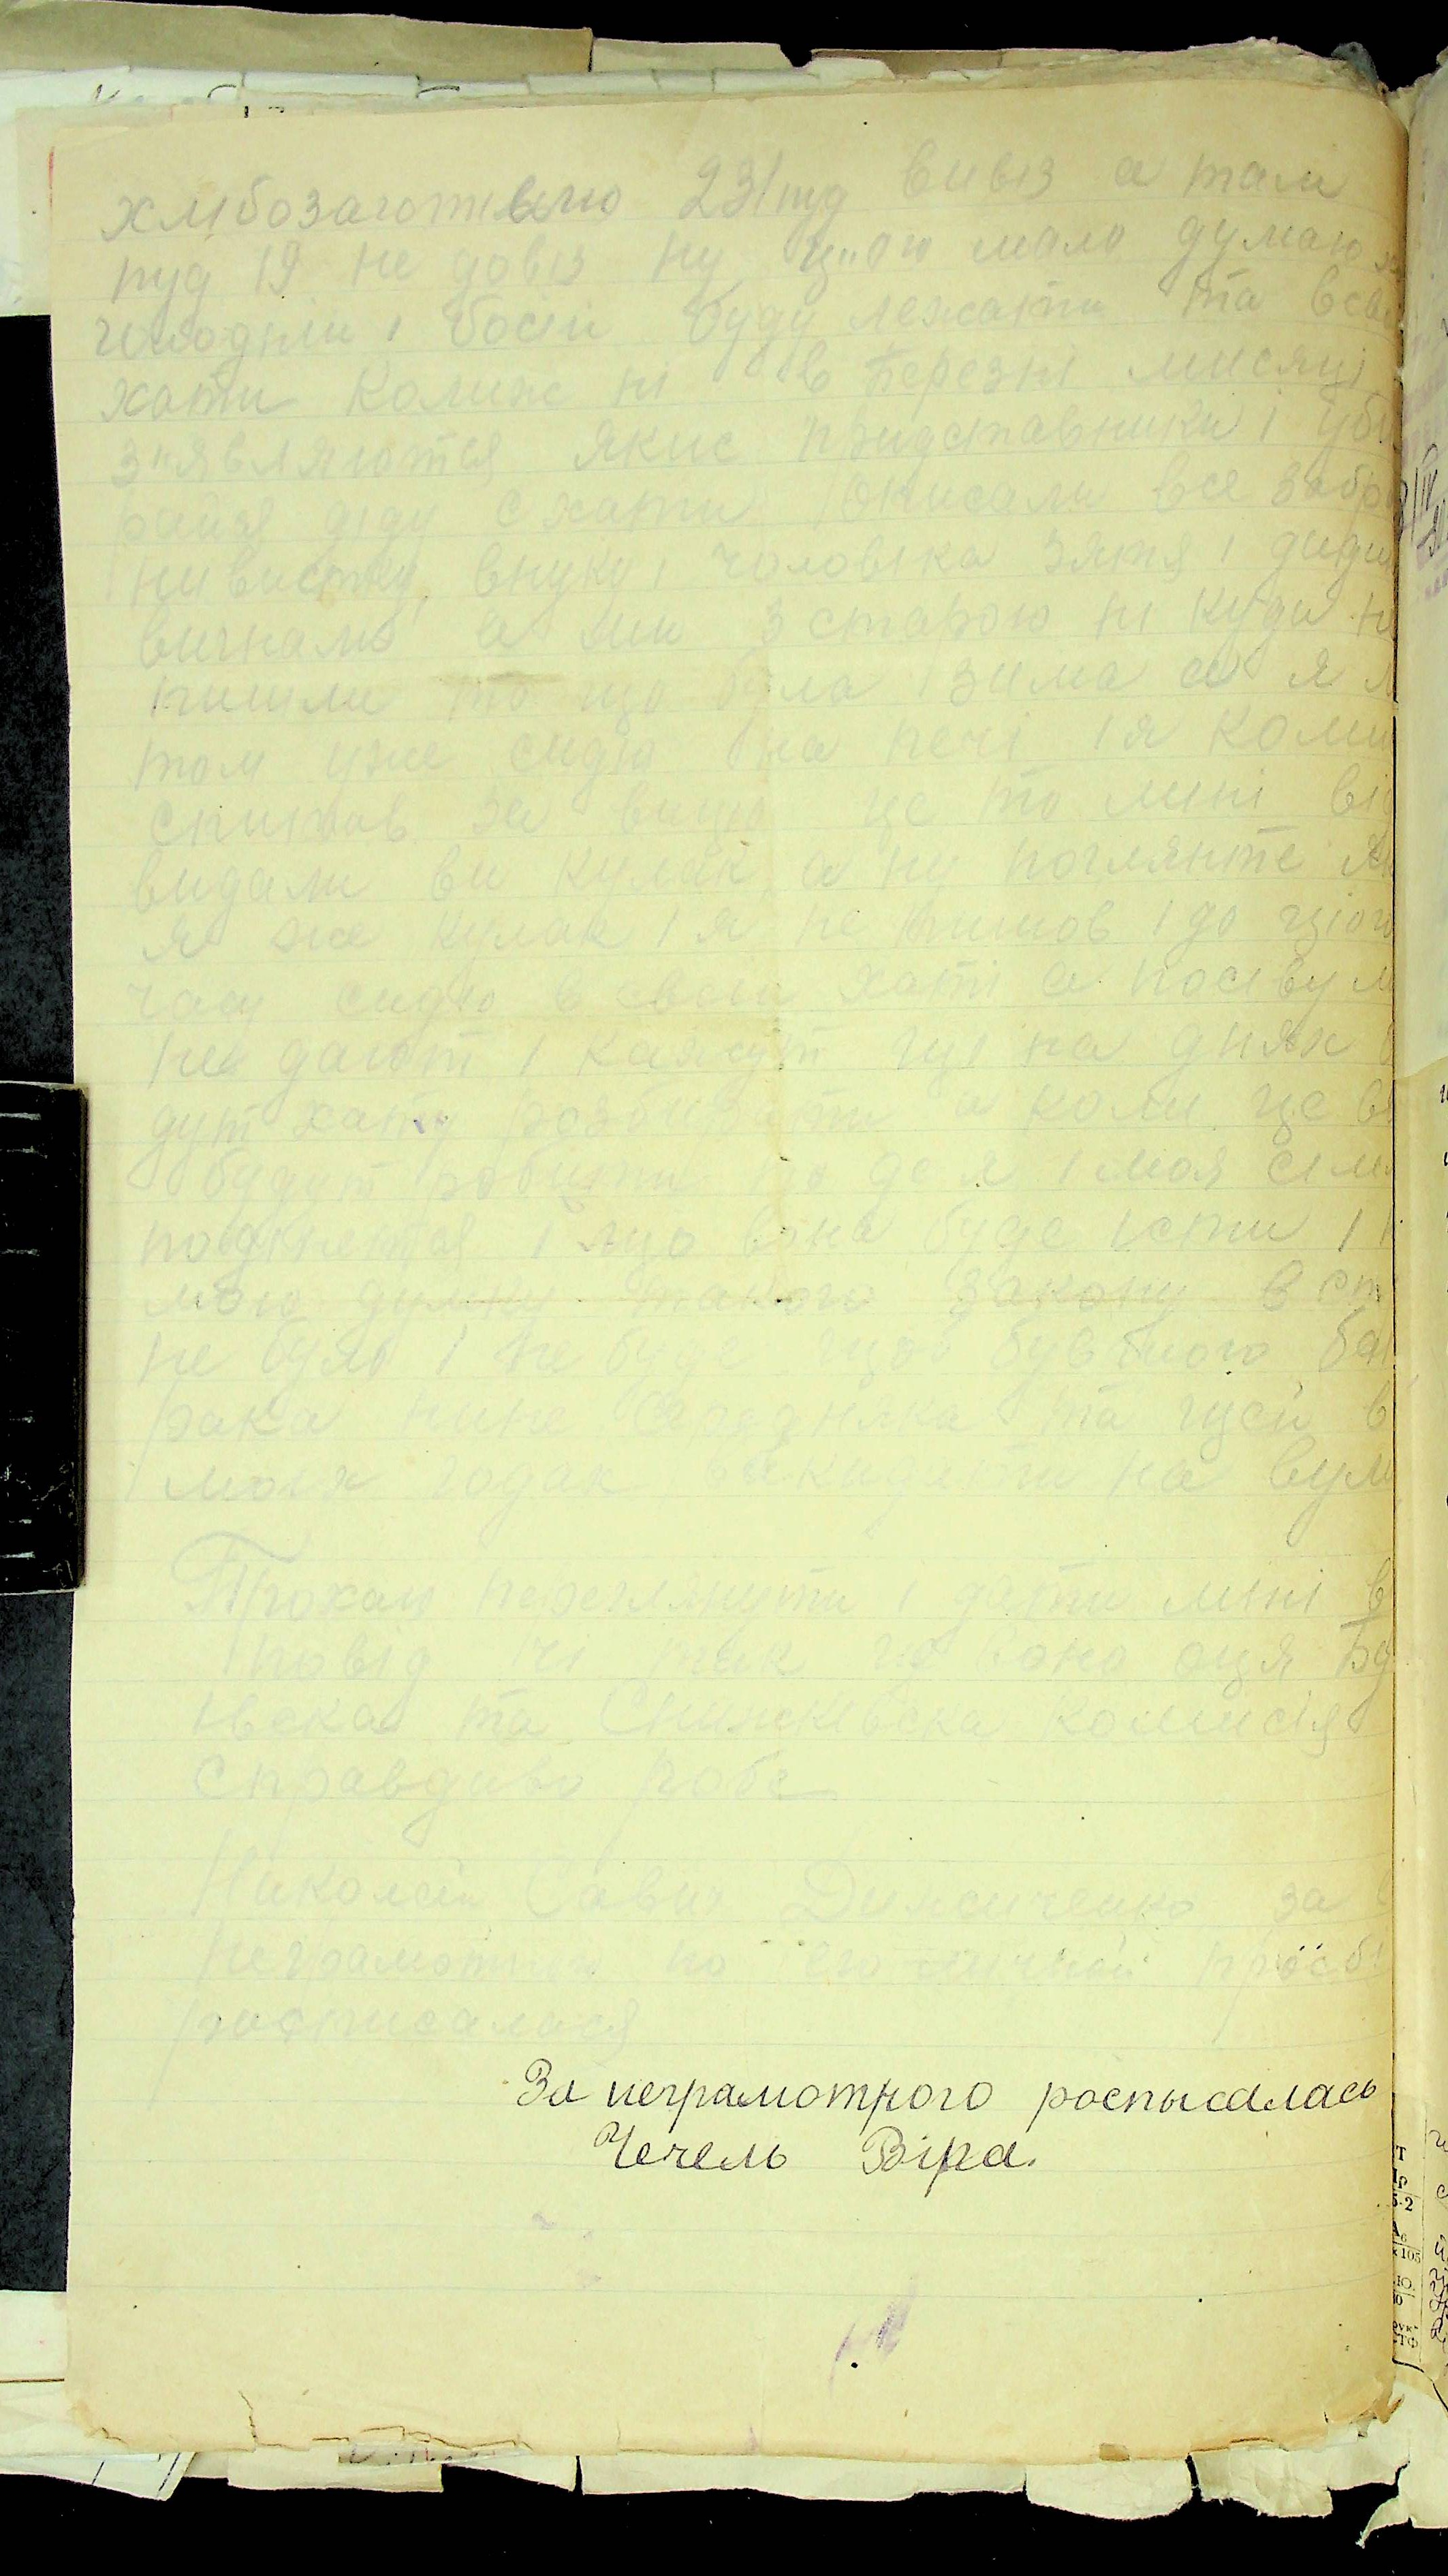 хлібозаготівлю 231 пуд вивіз а там
пуд 19 не довіз ну цього мало думаю
голодний і босий буду лежати та в сво
хати колиж ні в березні мисяці
з"являются якис придставники і уби
райся діду с хати. Описали все забр
нивистку, внуку і чоловіка зятя і дити
вигнали а ми з старою ні куди н
пишли то що була зима а я
том уже сидю на печі і я коли
спитав за вищо це то мині ві
видали ви кулак а ну поглянте
я же кулак і я не пишов і до цього
часу сидю в своій хаті а посіву
не дают і кажут що на днях
дут хату розбирати а коли це в
будут робити то де я і моя сім
подінется і що вона буде істи і
мою думку такого закону в ст
не було і не буде щоб бувшого ба
рака нине бедняка та щей в
моіх годах викидати на вул
Прохаю переглянути і дати мині в
повід чі так що вона оця
івска та Снижківска комисія
справдиво робе
Николай Савич за
неграмотний по его личной прозб
росписалася
За неграмотного роспысалась
Чечель Віра.